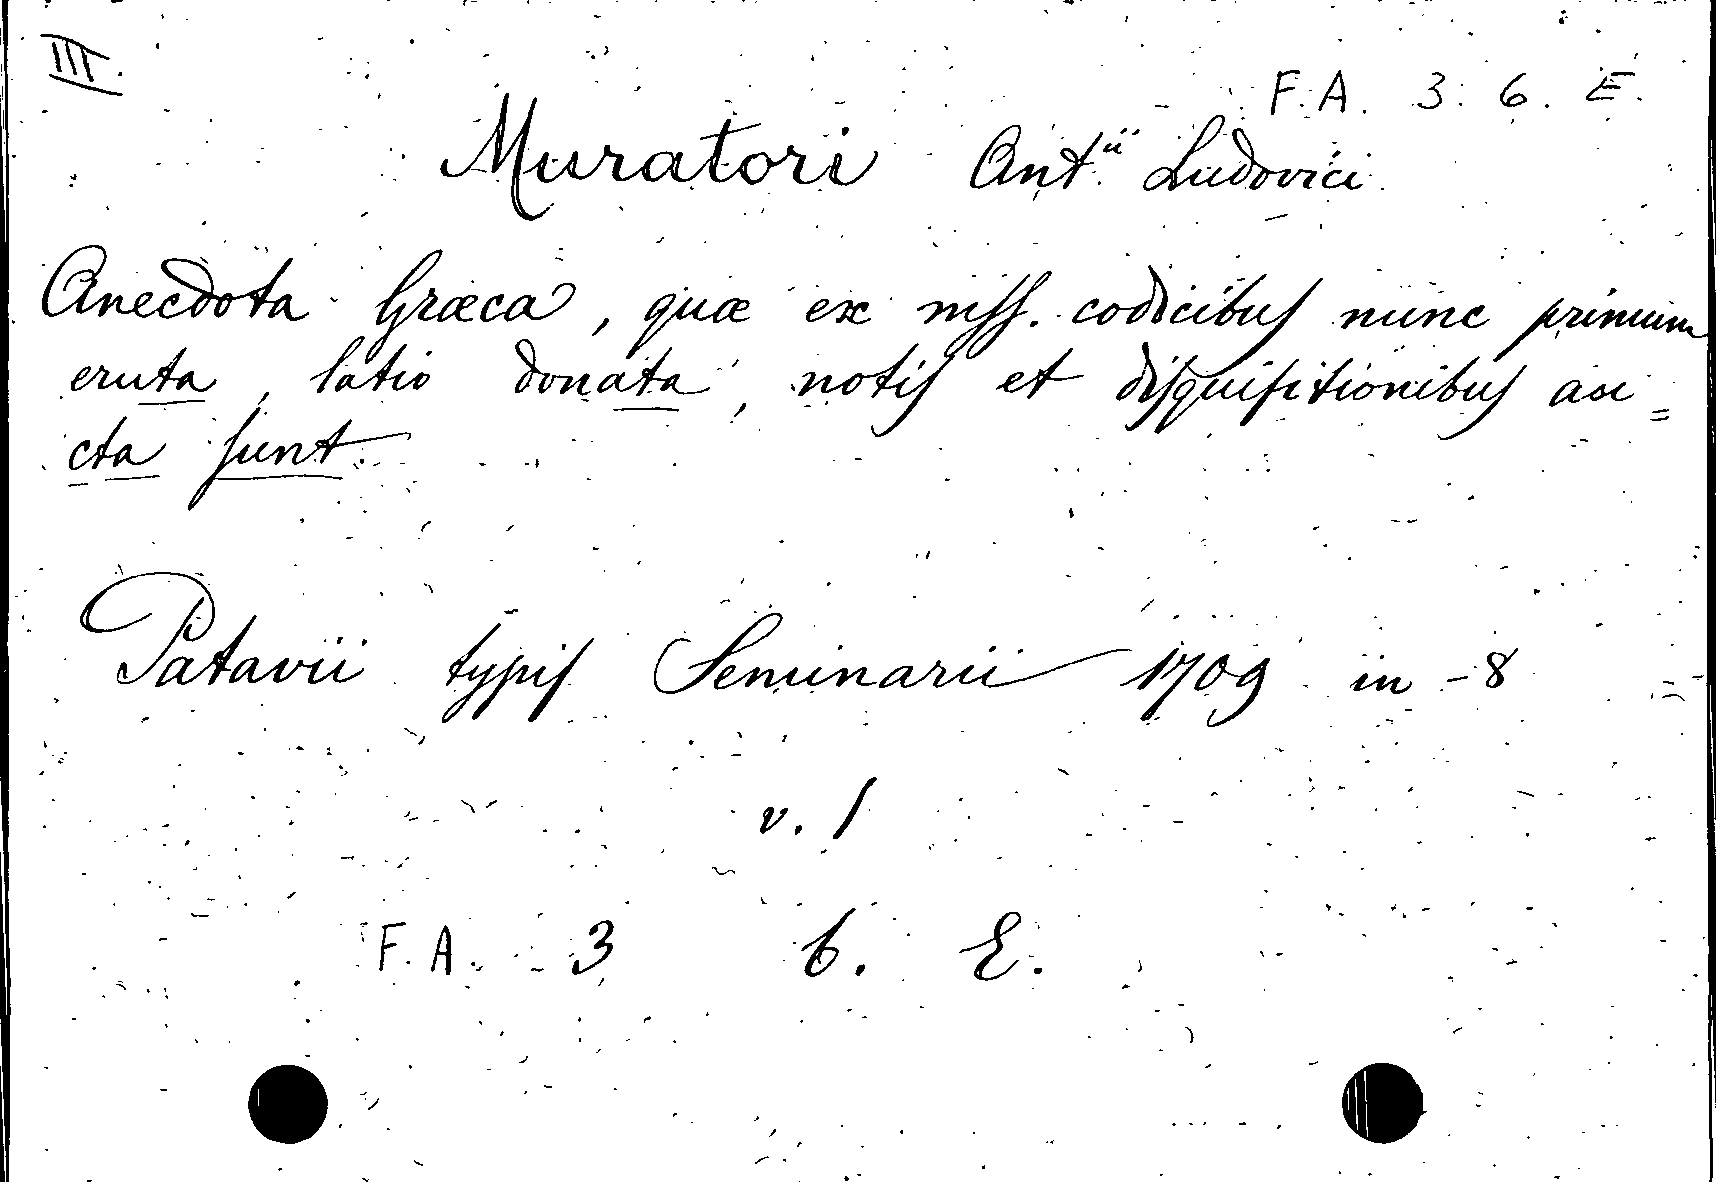 III.
F. A. 3. 6. E.
Muratori Ant.ii Ludovici
Anecdota Græca, quæ ex mss. codicibus nunc primum
eruta, latio donata, notis et disquisitionibus au=
cta sunt.
Patavii typis Seminarii 1709 in-8
v. 1
F. A. 3 6. E.